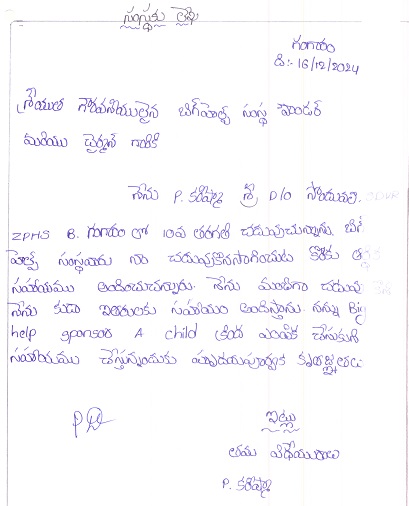 సంస్థకు లేఖ
గంగారం
ది:- 16/12/2024
శ్రీయుత గౌరవనీయులైన బిగ్‌హెల్ప్ సంస్థ ఫౌండర్
మరియు చైర్మన్ గారికి
నేను P. కరిష్మా శ్రీ D/O
ZPHS B. గంగారం లో 10వ తరగతి చదువుచున్నాను. బిగ్
హెల్ప్ సంస్థవారు నా చదువుకొనసాగించుట కొరకు
సహాయము అందించుచున్నారు. నేను మంచిగా చదువు
నేను కుడా ఇతరులకు సహాయం అందిస్తాను. నన్ను Big
help sponsor A child క్రింద ఎంపిక చేసుకుని
సహాయము చేస్తున్నందుకు హృదయపూర్వక కృతజ్ఞతలు
ఇట్లు
తమ విధేయురాలు
P. కరిష్మా